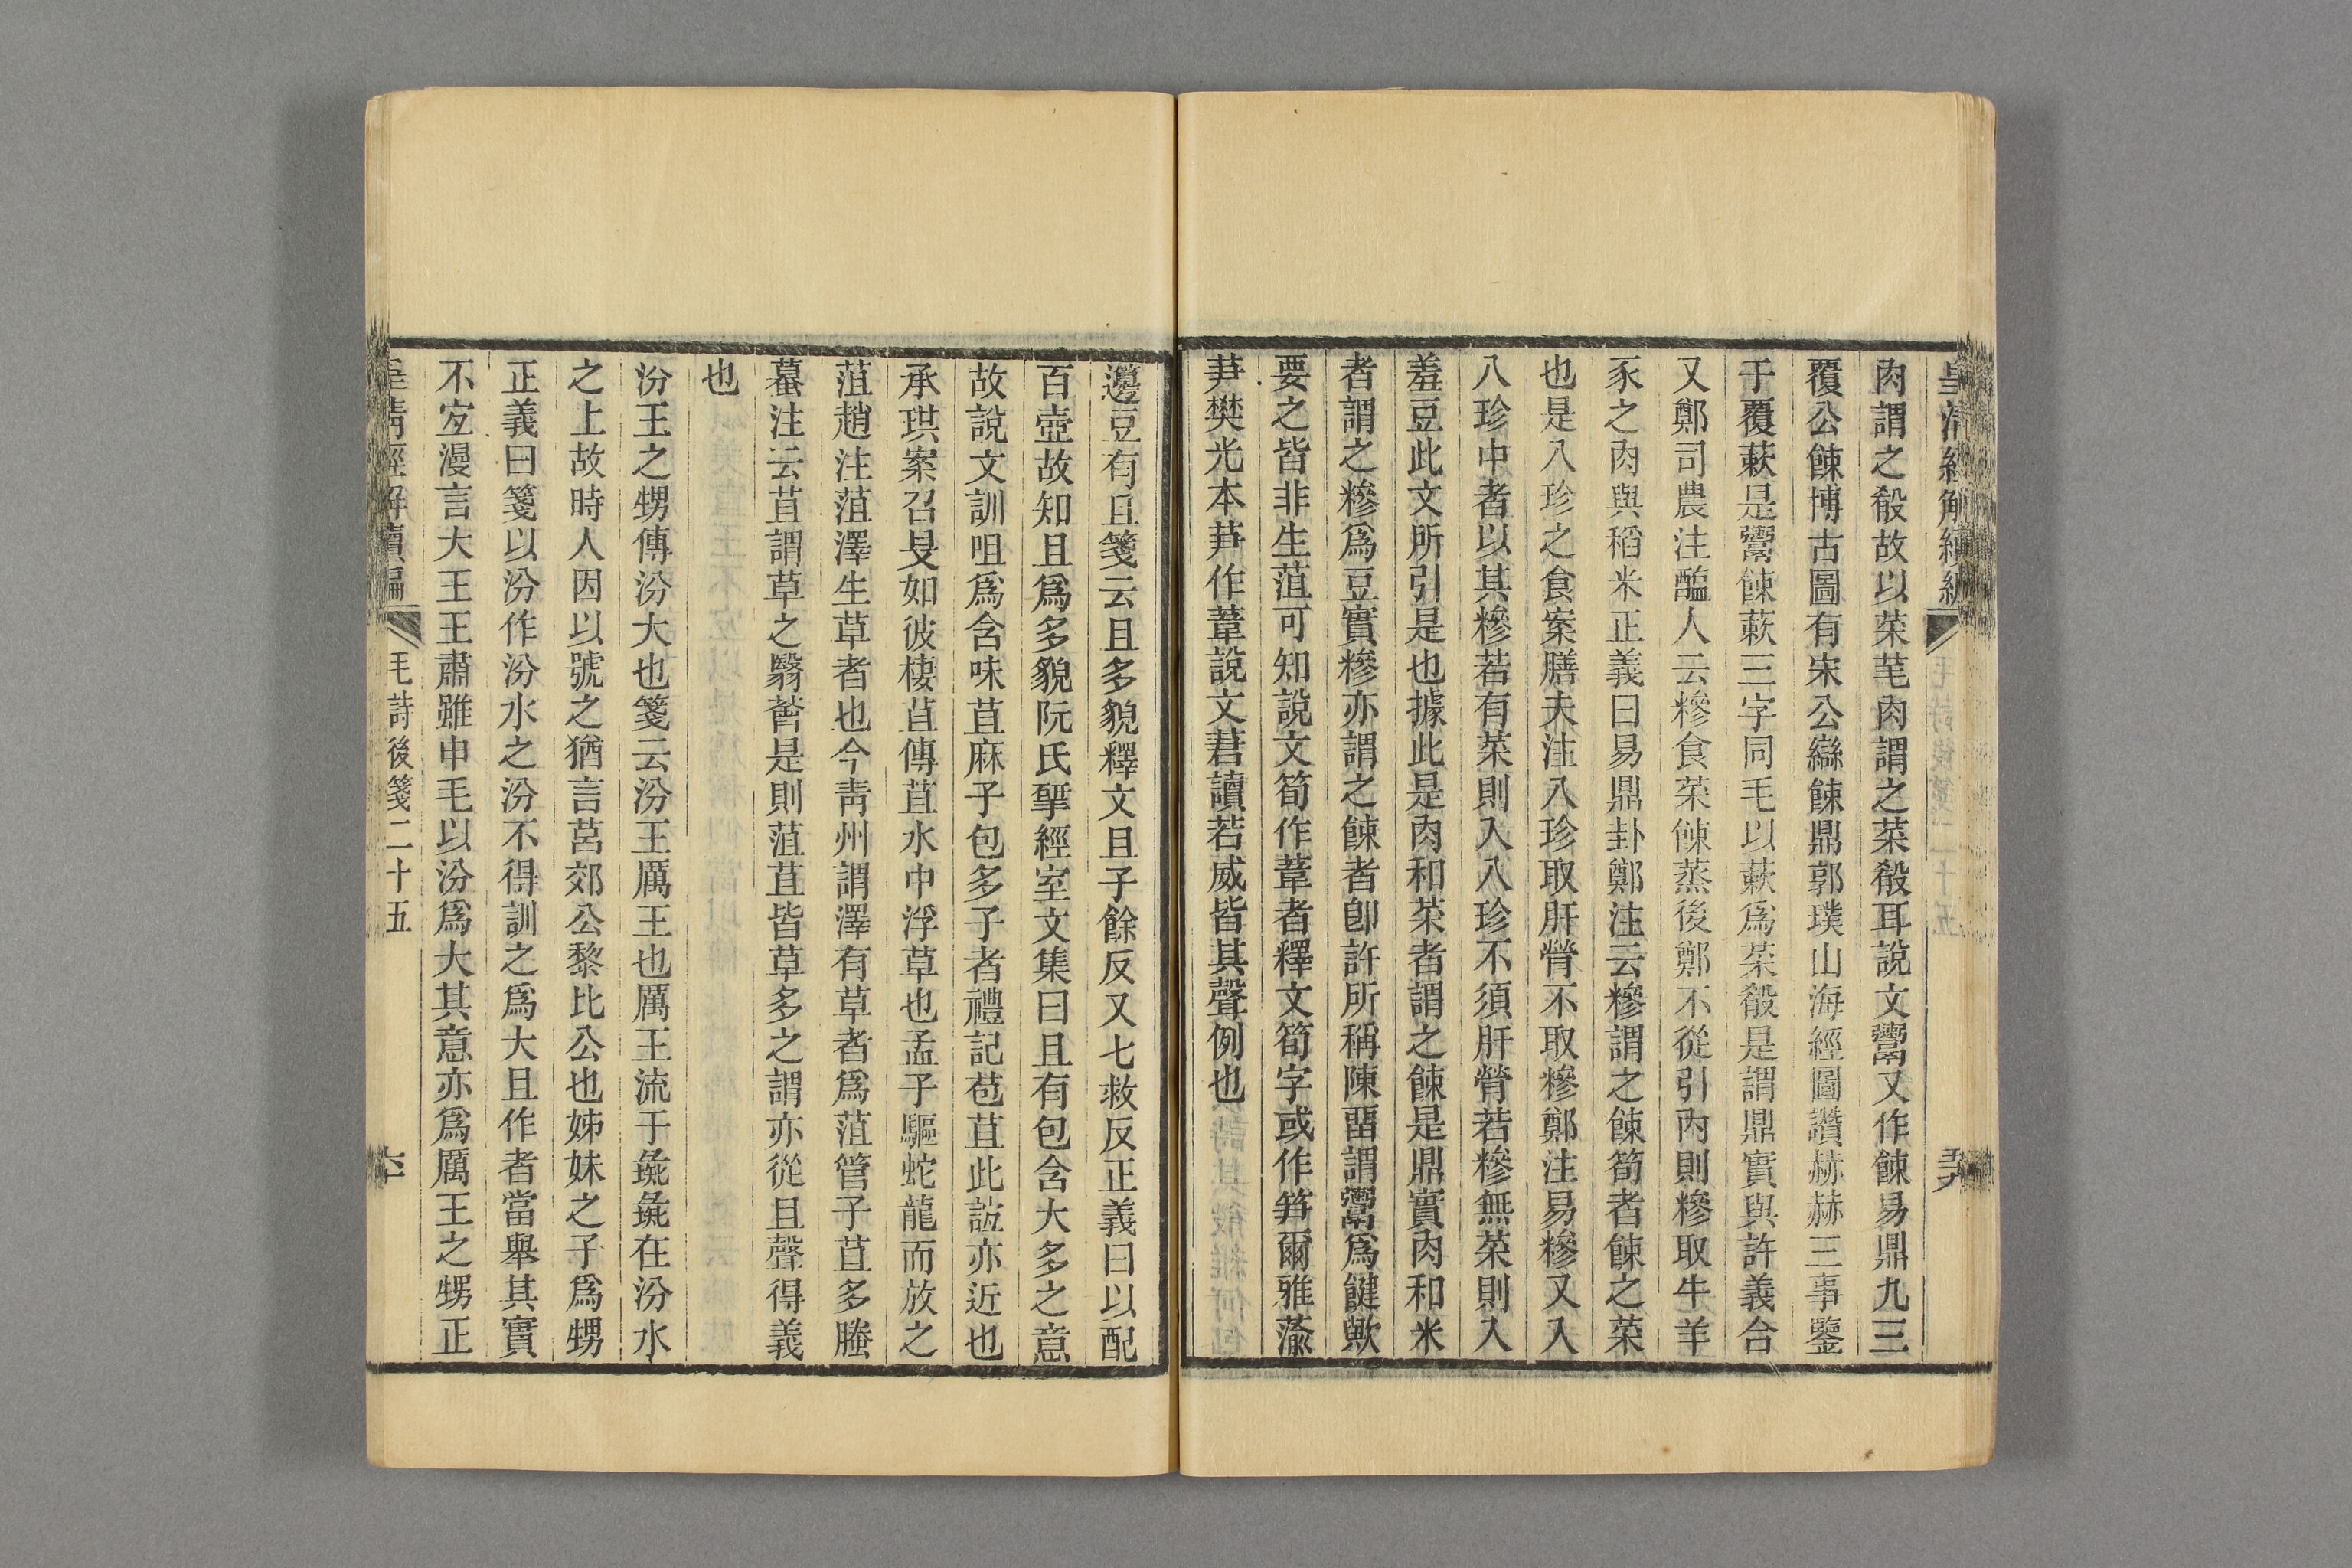 肉謂之殽故以菜芼肉謂之菜殽耳說文鬻又作餗易鼎九三
覆公餗博古圖有宋公䜌餗鼎郭璞山海經圖讚赫赫三事鑒
于覆蔌是鬻餗蔌三字同毛以蔌爲菜殽是謂鼎實與許義合
又鄭司農注醢人云糝食菜餗蒸後鄭不從引內則糝取牛羊
豕之肉與稻米正義曰易鼎卦鄭注云糝謂之餗筍者餗之菜
也是八珍之食案膳夫注八珍取肝膋不取糝鄭注易糝又入
八珍中者以其糝若有菜則入八珍不須肝膋若糝無菜則入
羞豆此文所引是也據此是肉和菜者謂之餗是鼎實肉和米
者謂之糝爲豆實糝亦謂之餗者卽許所稱陳畱謂鬻爲鍵歟
要之皆非生菹可知說文筍作葦者釋文筍字或作笋爾雅蕍
芛樊光本芛作葦說文莙讀若威皆其聲例也
籩豆有且箋云且多貌釋文且子餘反又七救反正義曰以配
百壺故知且爲多貌阮氏揅經室文集曰且有包含大多之意
故說文訓咀爲含味苴麻子包多子者禮記苞苴此誼亦近也
承珙案召旻如彼棲苴傳苴水中浮草也孟子驅蛇龍而放之
菹趙注菹澤生草者也今靑州謂澤有草者爲菹管子苴多螣
蟇注云苴謂草之翳薈是則菹苴皆草多之謂亦從且聲得義
也
汾王之甥傳汾大也箋云汾王厲王也厲王流于彘彘在汾水
之上故時人因以號之猶言莒郊公黎比公也姊妹之子爲甥
正義曰箋以汾作汾水之汾不得訓之爲大且作者當舉其實
不宐漫言大王王肅雖申毛以汾爲大其意亦爲厲王之甥正
皇淸經解續編 毛詩後箋二十五